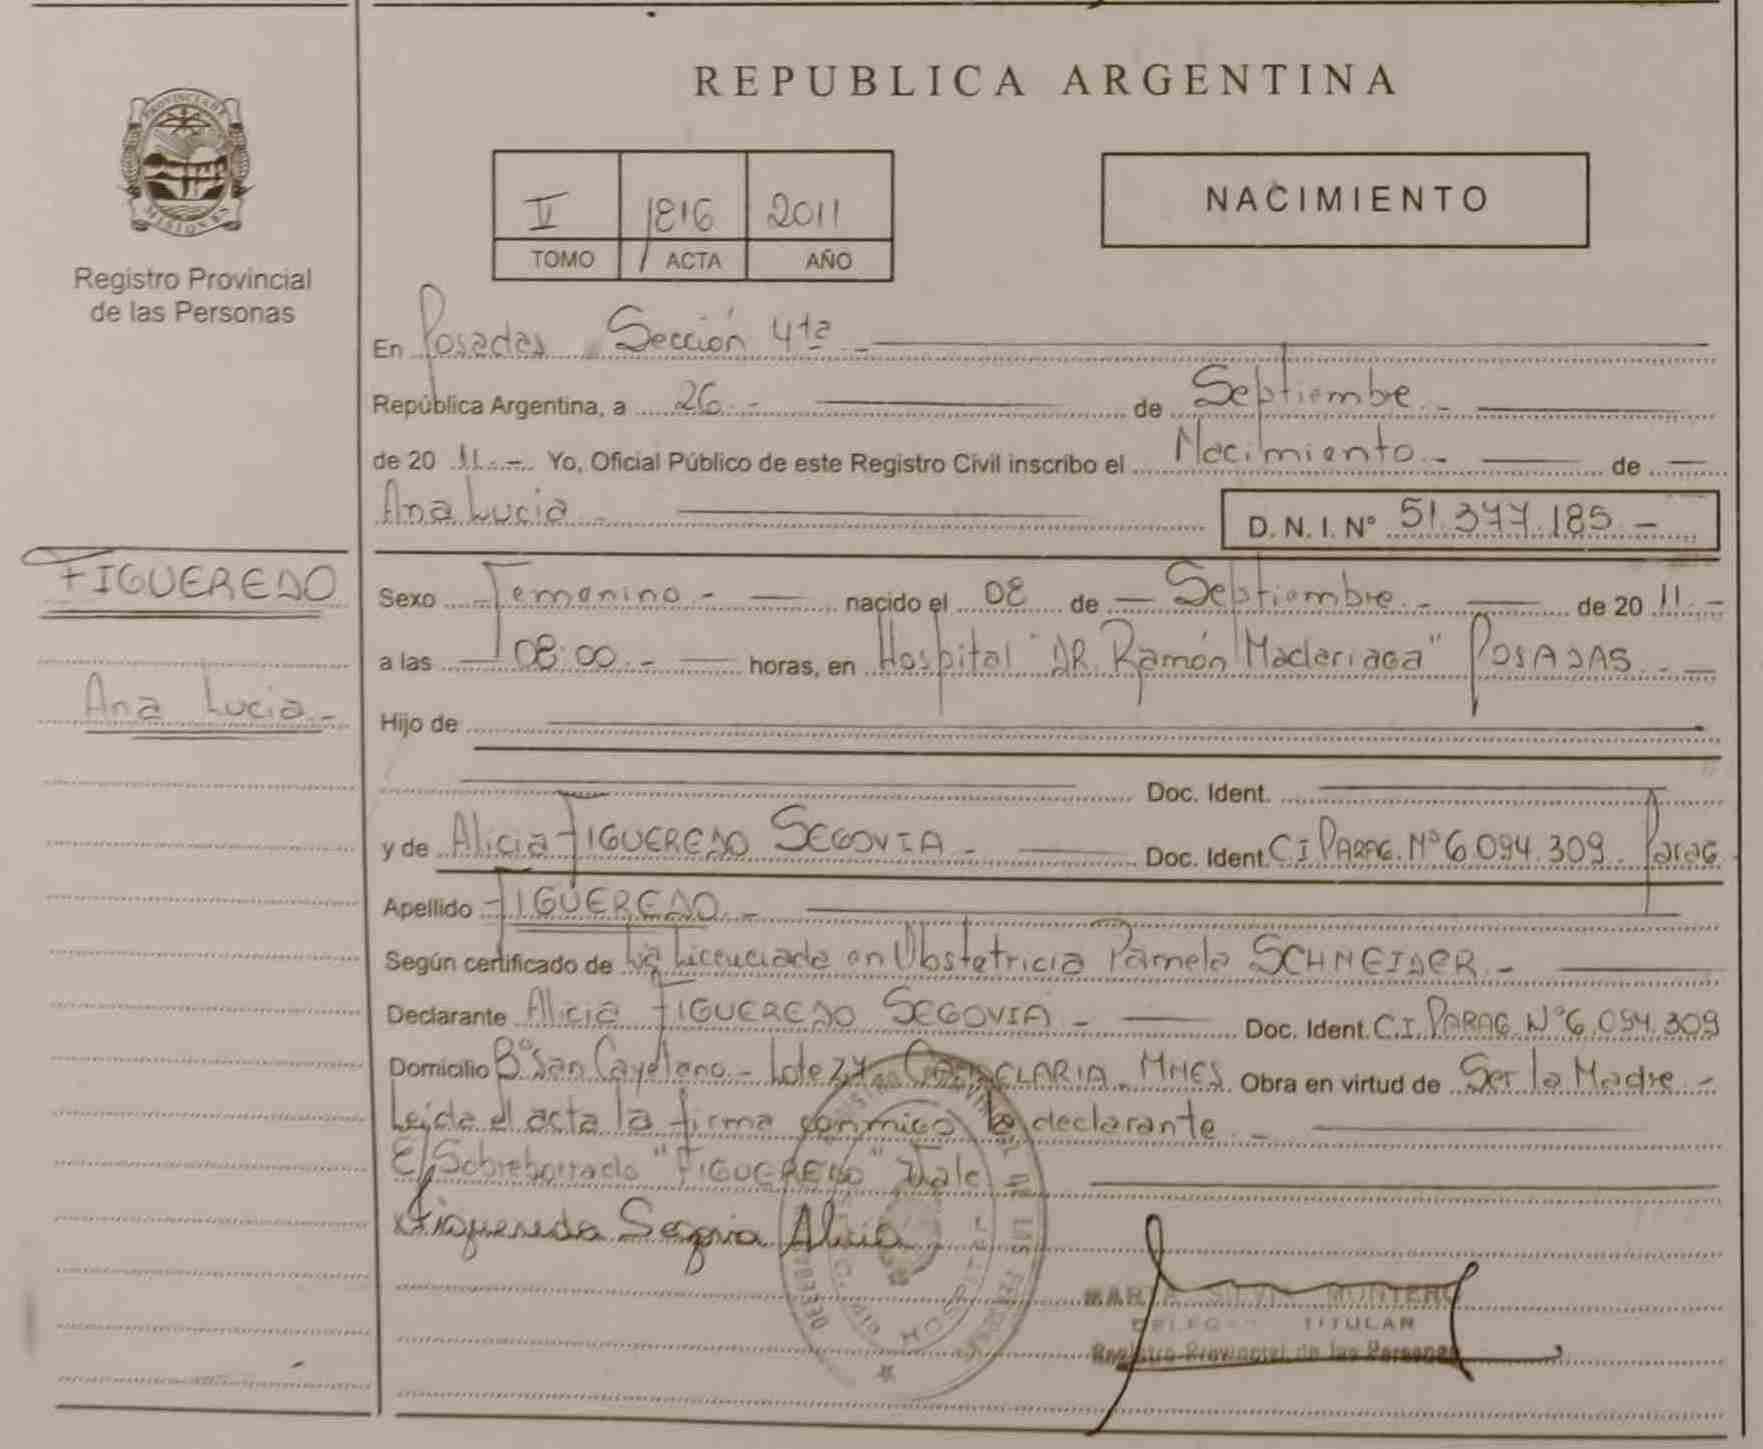 REPUBLICA ARGENTINA
PROVINCIA DE
MISIONES
Registro Provincial
de las Personas
1816 2011
TOMO ACTA AÑO
NACIMIENTO
En Posadas Sección 4ta -
República Argentina, a 26 - de Septiembre -
de 20 11 - Yo, Oficial Público de este Registro Civil inscribo el Nacimiento - de -
Ana Lucia - D. N. I. Nº 51.377.185 -
FIGUEREDO
Ana Lucia -
Sexo Femenino - nacido el 08 de Septiembre - de 20 11 -
a las 08:00 - horas, en Hospital "DR. Ramón Madariaga" POSADAS -
Hijo de
Doc. Ident.
y de Alicia FIGUEREDO SEGOVIA - Doc. Ident. C I PARAG. Nº 6.094.309 Parag
Apellido FIGUEREDO -
Según certificado de la Licenciada en Obstetricia Pamela SCHNEIDER -
Declarante Alicia FIGUEREDO SEGOVIA - Doc. Ident. C.I. PARAG. Nº 6.094.309
Domicilio Bº San Cayetano - Lote 27 CANDELARIA - Mnes Obra en virtud de Ser la Madre -
Leida el acta la firma conmigo la declarante -
El Sobreborrado "FIGUEREDO" Vale =
Figueredo Segovia Alicia
MONTERO
TITULAR
Registro Provincial de las Personas